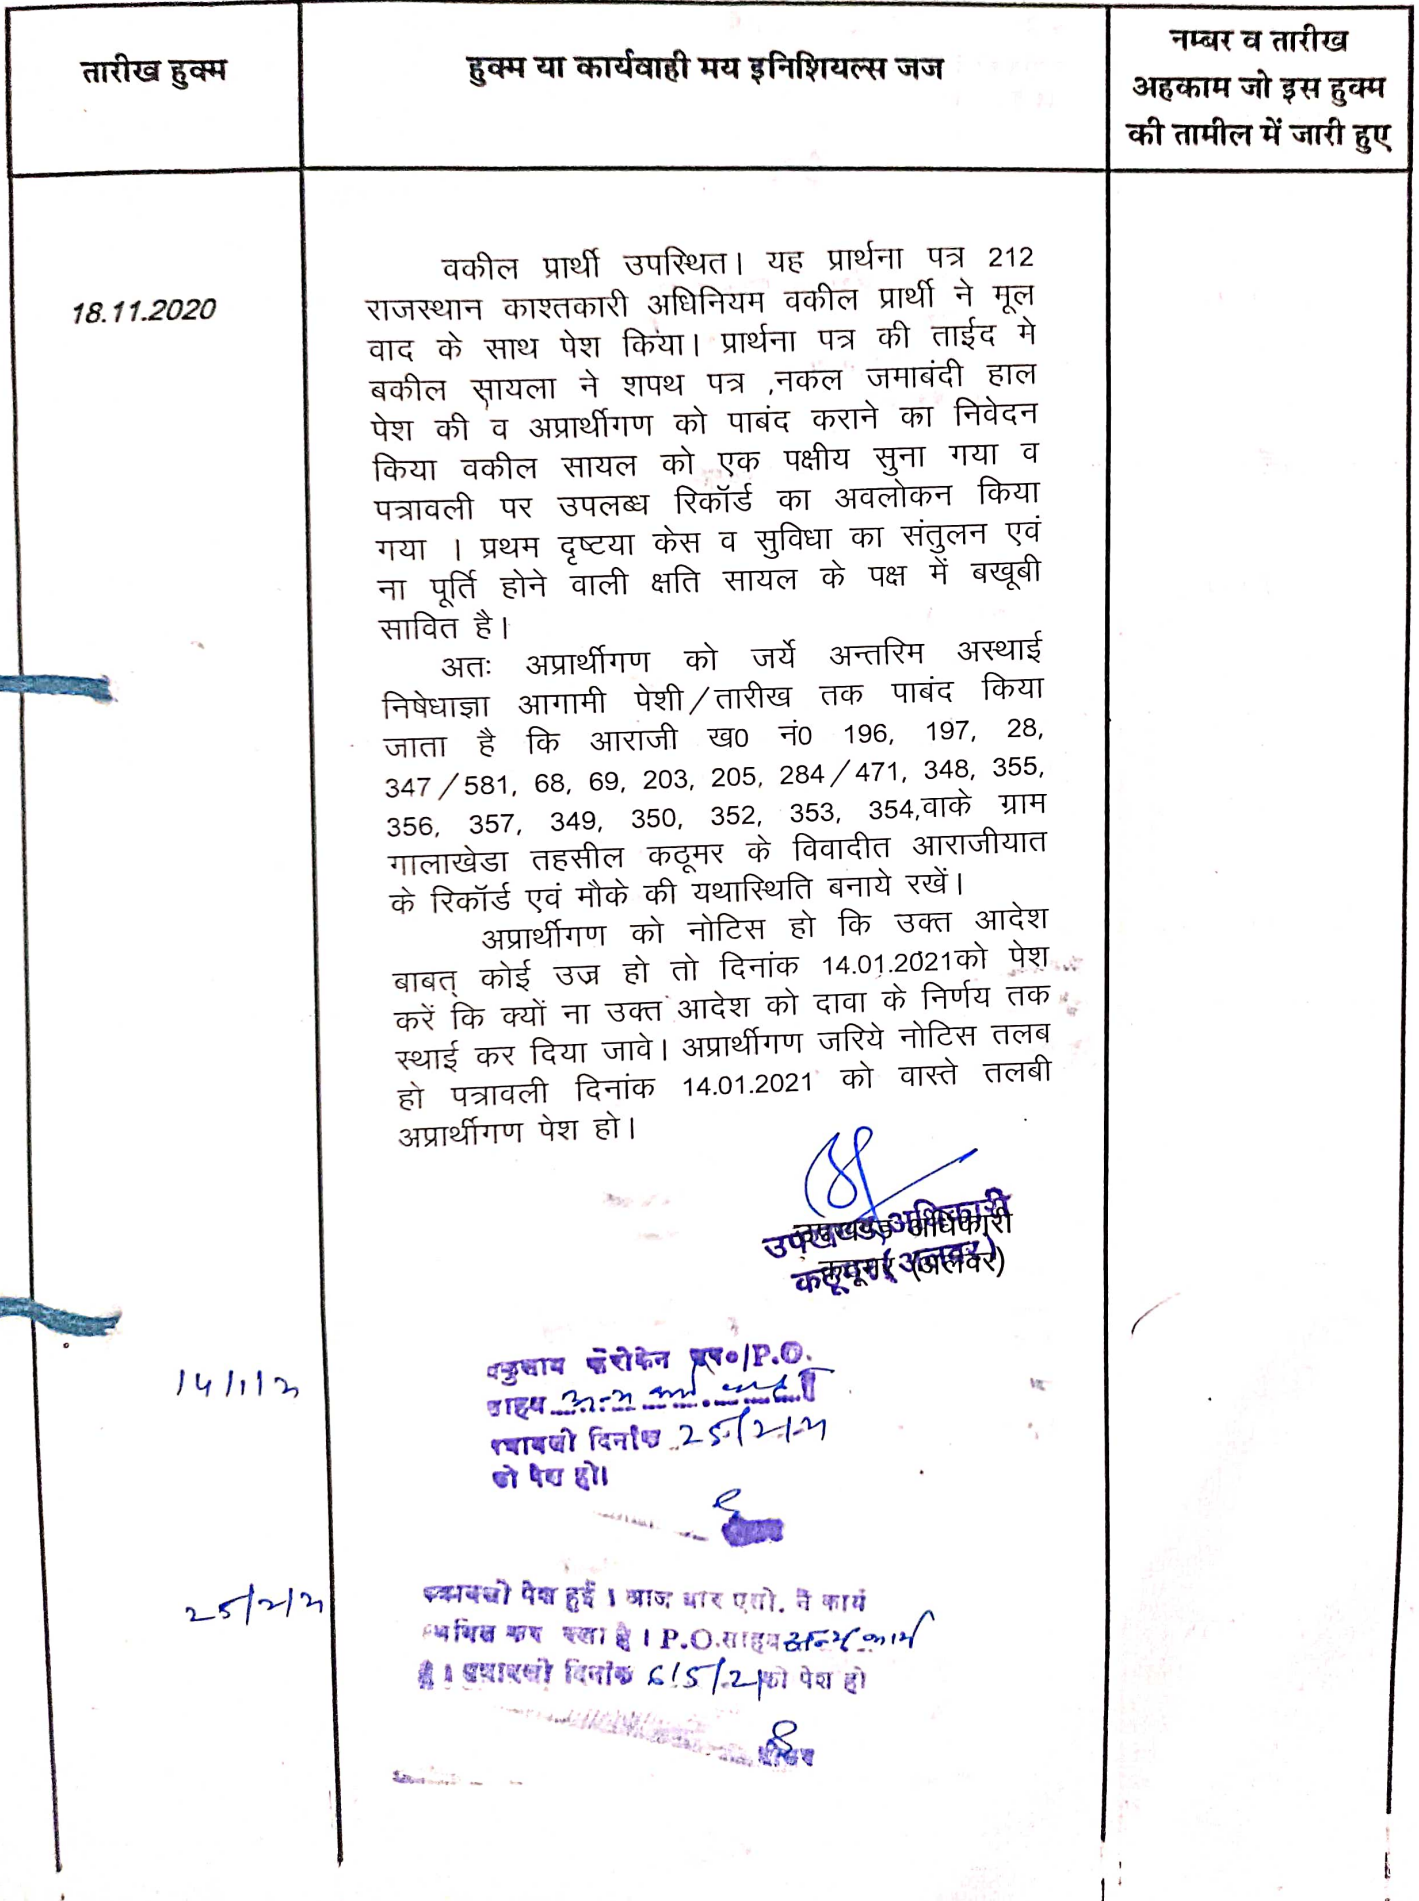 तारीख हुक्म
हुक्म या कार्यवाही मय इनिशियल्स जज
नम्बर व तारीख
अहकाम जो इस हुक्म
की तामील में जारी हुए
18.11.2020
वकील प्रार्थी उपस्थित। यह प्रार्थना पत्र 212
राजस्थान काश्तकारी अधिनियम वकील प्रार्थी ने मूल
वाद के साथ पेश किया। प्रार्थना पत्र की ताईद मे
बकील सायला ने शपथ पत्र ,नकल जमाबंदी हाल
पेश की व अप्रार्थीगण को पाबंद कराने का निवेदन
किया वकील सायल को एक पक्षीय सुना गया व
पत्रावली पर उपलब्ध रिकॉर्ड का अवलोकन किया
गया । प्रथम दृष्टया केस व सुविधा का संतुलन एवं
ना पूर्ति होने वाली क्षति सायल के पक्ष में बखूबी
सावित है।
अतः अप्रार्थीगण को जर्ये अन्तरिम अस्थाई
निषेधाज्ञा आगामी पेशी/तारीख तक पाबंद किया
जाता है कि आराजी ख0 नं0 196, 197, 28,
347/581, 68, 69, 203, 205, 284/471, 348, 355,
356, 357, 349, 350, 352, 353, 354,वाके ग्राम
गालाखेडा तहसील कठूमर के विवादीत आराजीयात
के रिकॉर्ड एवं मौके की यथास्थिति बनाये रखें।
अप्रार्थीगण को नोटिस हो कि उक्त आदेश
बाबत् कोई उज्र हो तो दिनांक 14.01.2021को पेश
करें कि क्यों ना उक्त आदेश को दावा के निर्णय तक
स्थाई कर दिया जावे। अप्रार्थीगण जरिये नोटिस तलब
हो पत्रावली दिनांक 14.01.2021 को वास्ते तलबी
अप्रार्थीगण पेश हो।
उपखण्ड अधिकारी
कठूमर (अलवर)
उपखण्ड अधिकारी
कठूमर (अलवर)
14/1/21
P.O.
साहब अन्य कार्य
पत्रावली दिनांक 25/2/21
को पेश हो।
25/2/21
पत्रावली पेश हुई । आज बार एसो. ने कार्य
स्थगित कर रखा है । P.O.साहब अन्य कार्य
है । पत्रावली दिनांक 6/5/21को पेश हो